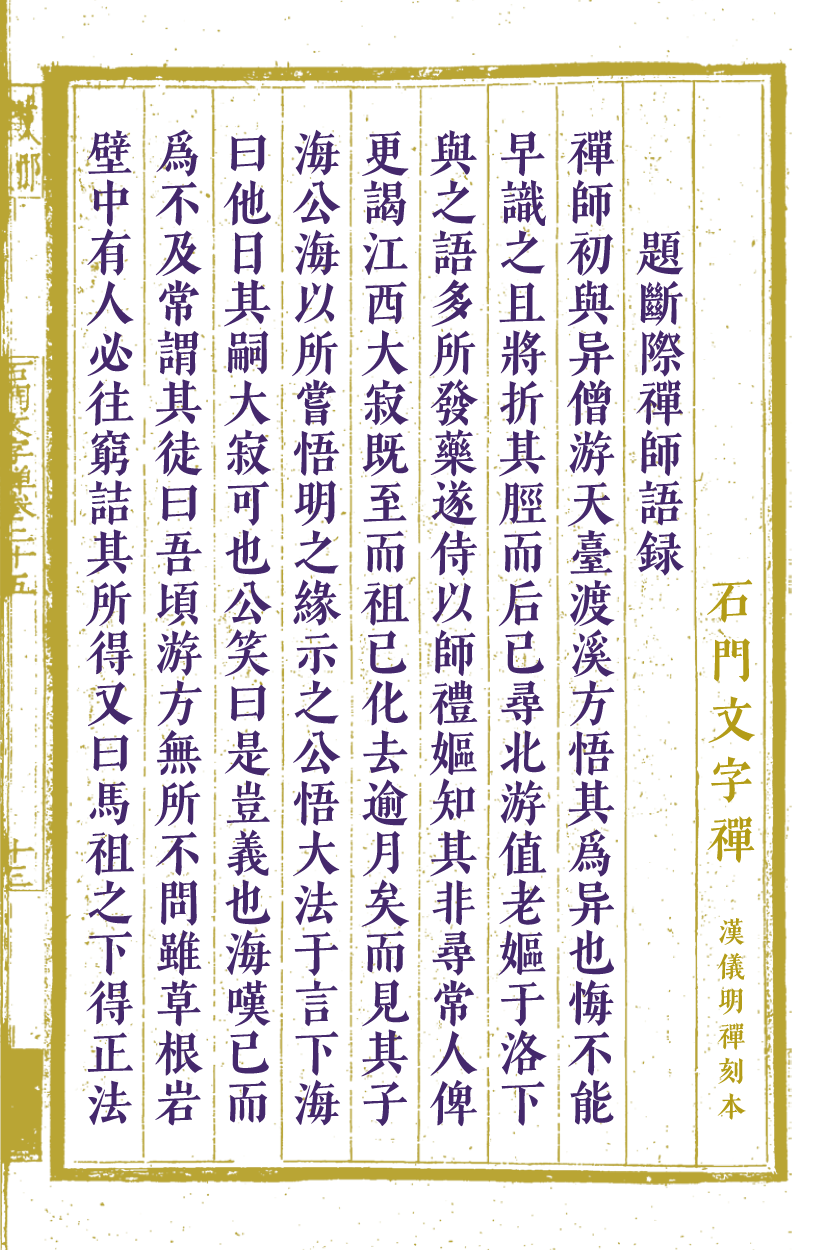 石門文字禪 漢儀明禪刻本
題斷際禪師語録
禪師初與异僧游天臺渡溪方悟其爲异也悔不能
早識之且將折其脛而后已尋北游值老嫗于洛下
與之語多所發藥遂侍以師禮嫗知其非尋常人俾
更謁江西大寂既至而祖已化去逾月矣而見其子
海公海以所嘗悟明之緣示之公悟大法于言下海
曰他日其嗣大寂可也公笑曰是豈義也海嘆已而
爲不及常謂其徒曰吾頃游方無所不問雖草根岩
壁中有人必往窮詰其所得又曰馬祖之下得正法
石門文字禪卷二十五
十三